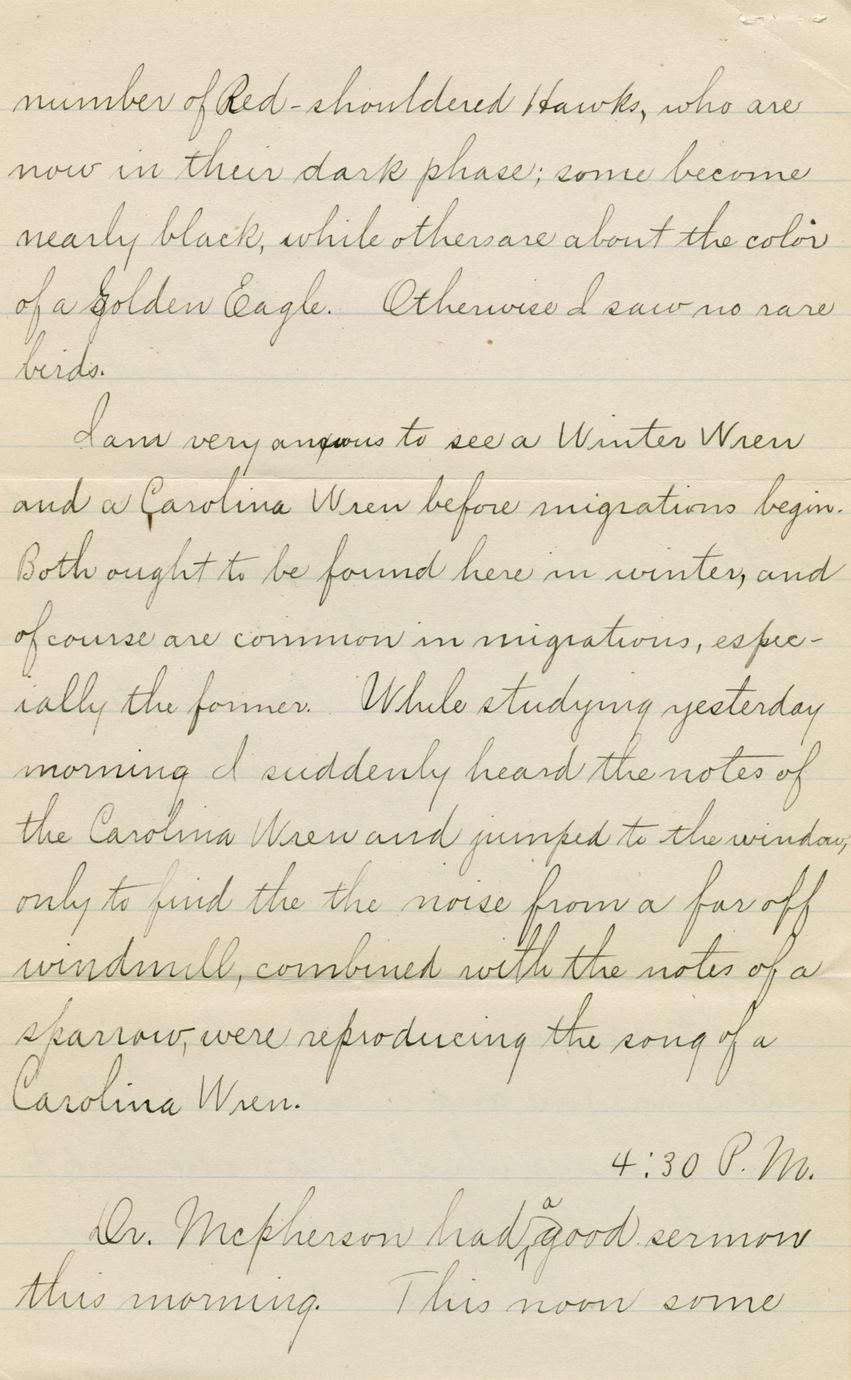 number of Red-shouldered Hawks, who are
now in their dark phase; some become
nearly black, while others are about the color
of a golden Eagle. Otherwise I saw no rare
birds.
I am very anxious to see a Winter Wren
and a Carolina Wren before migrations begin.
Both ought to be found here in winter, and
of course are common in migrations, espec-
ially the former. While studying yesterday
morning I suddenly heard the notes of
the Carolina Wren and jumped to the window,
only to find the the noise from a far off
windmill, combined with the notes of a
sparrow, were reproducing the song of a
Carolina Wren.
4:30 P.M.
Dr. Mcpherson had a good sermon
this morning. This noon some